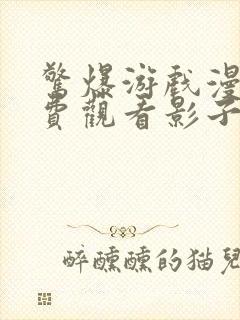 驚爆游戲漫
費觀看影子
醉醺醺的猫兒